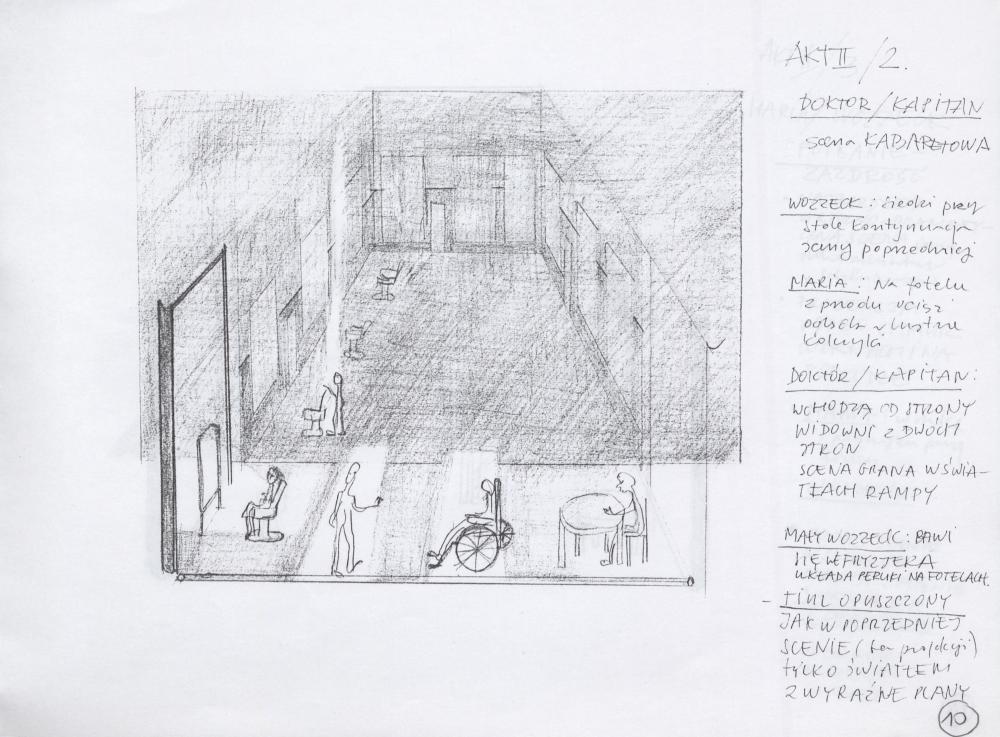 AKT II/2.
DOKTOR/KAPITAN
scena KABARETOWA
WOZZECK: siedzi przy
stole kontynuacja
sceny poprzedniej
MARIA: Na fotelu
z przodu
w lustrze
kolczyki
DOKTÓR/KAPITAN:
WCHODZĄ OD STRONY
WIDOWNI Z DWÓCH
STRON
SCENA GRANA W ŚWIA-
TŁACH RAMPY
MAŁY WOZZECK: BAWI
SIĘ W FRYZJERA
UKŁADA PERUKI NA FOTELACH.
- TIUL OPUSZCZONY
JAK W POPRZEDNIEJ
SCENIE (bez projekcji)
tylko ŚWIATŁEM
2 WYRAŹNE PLANY
10